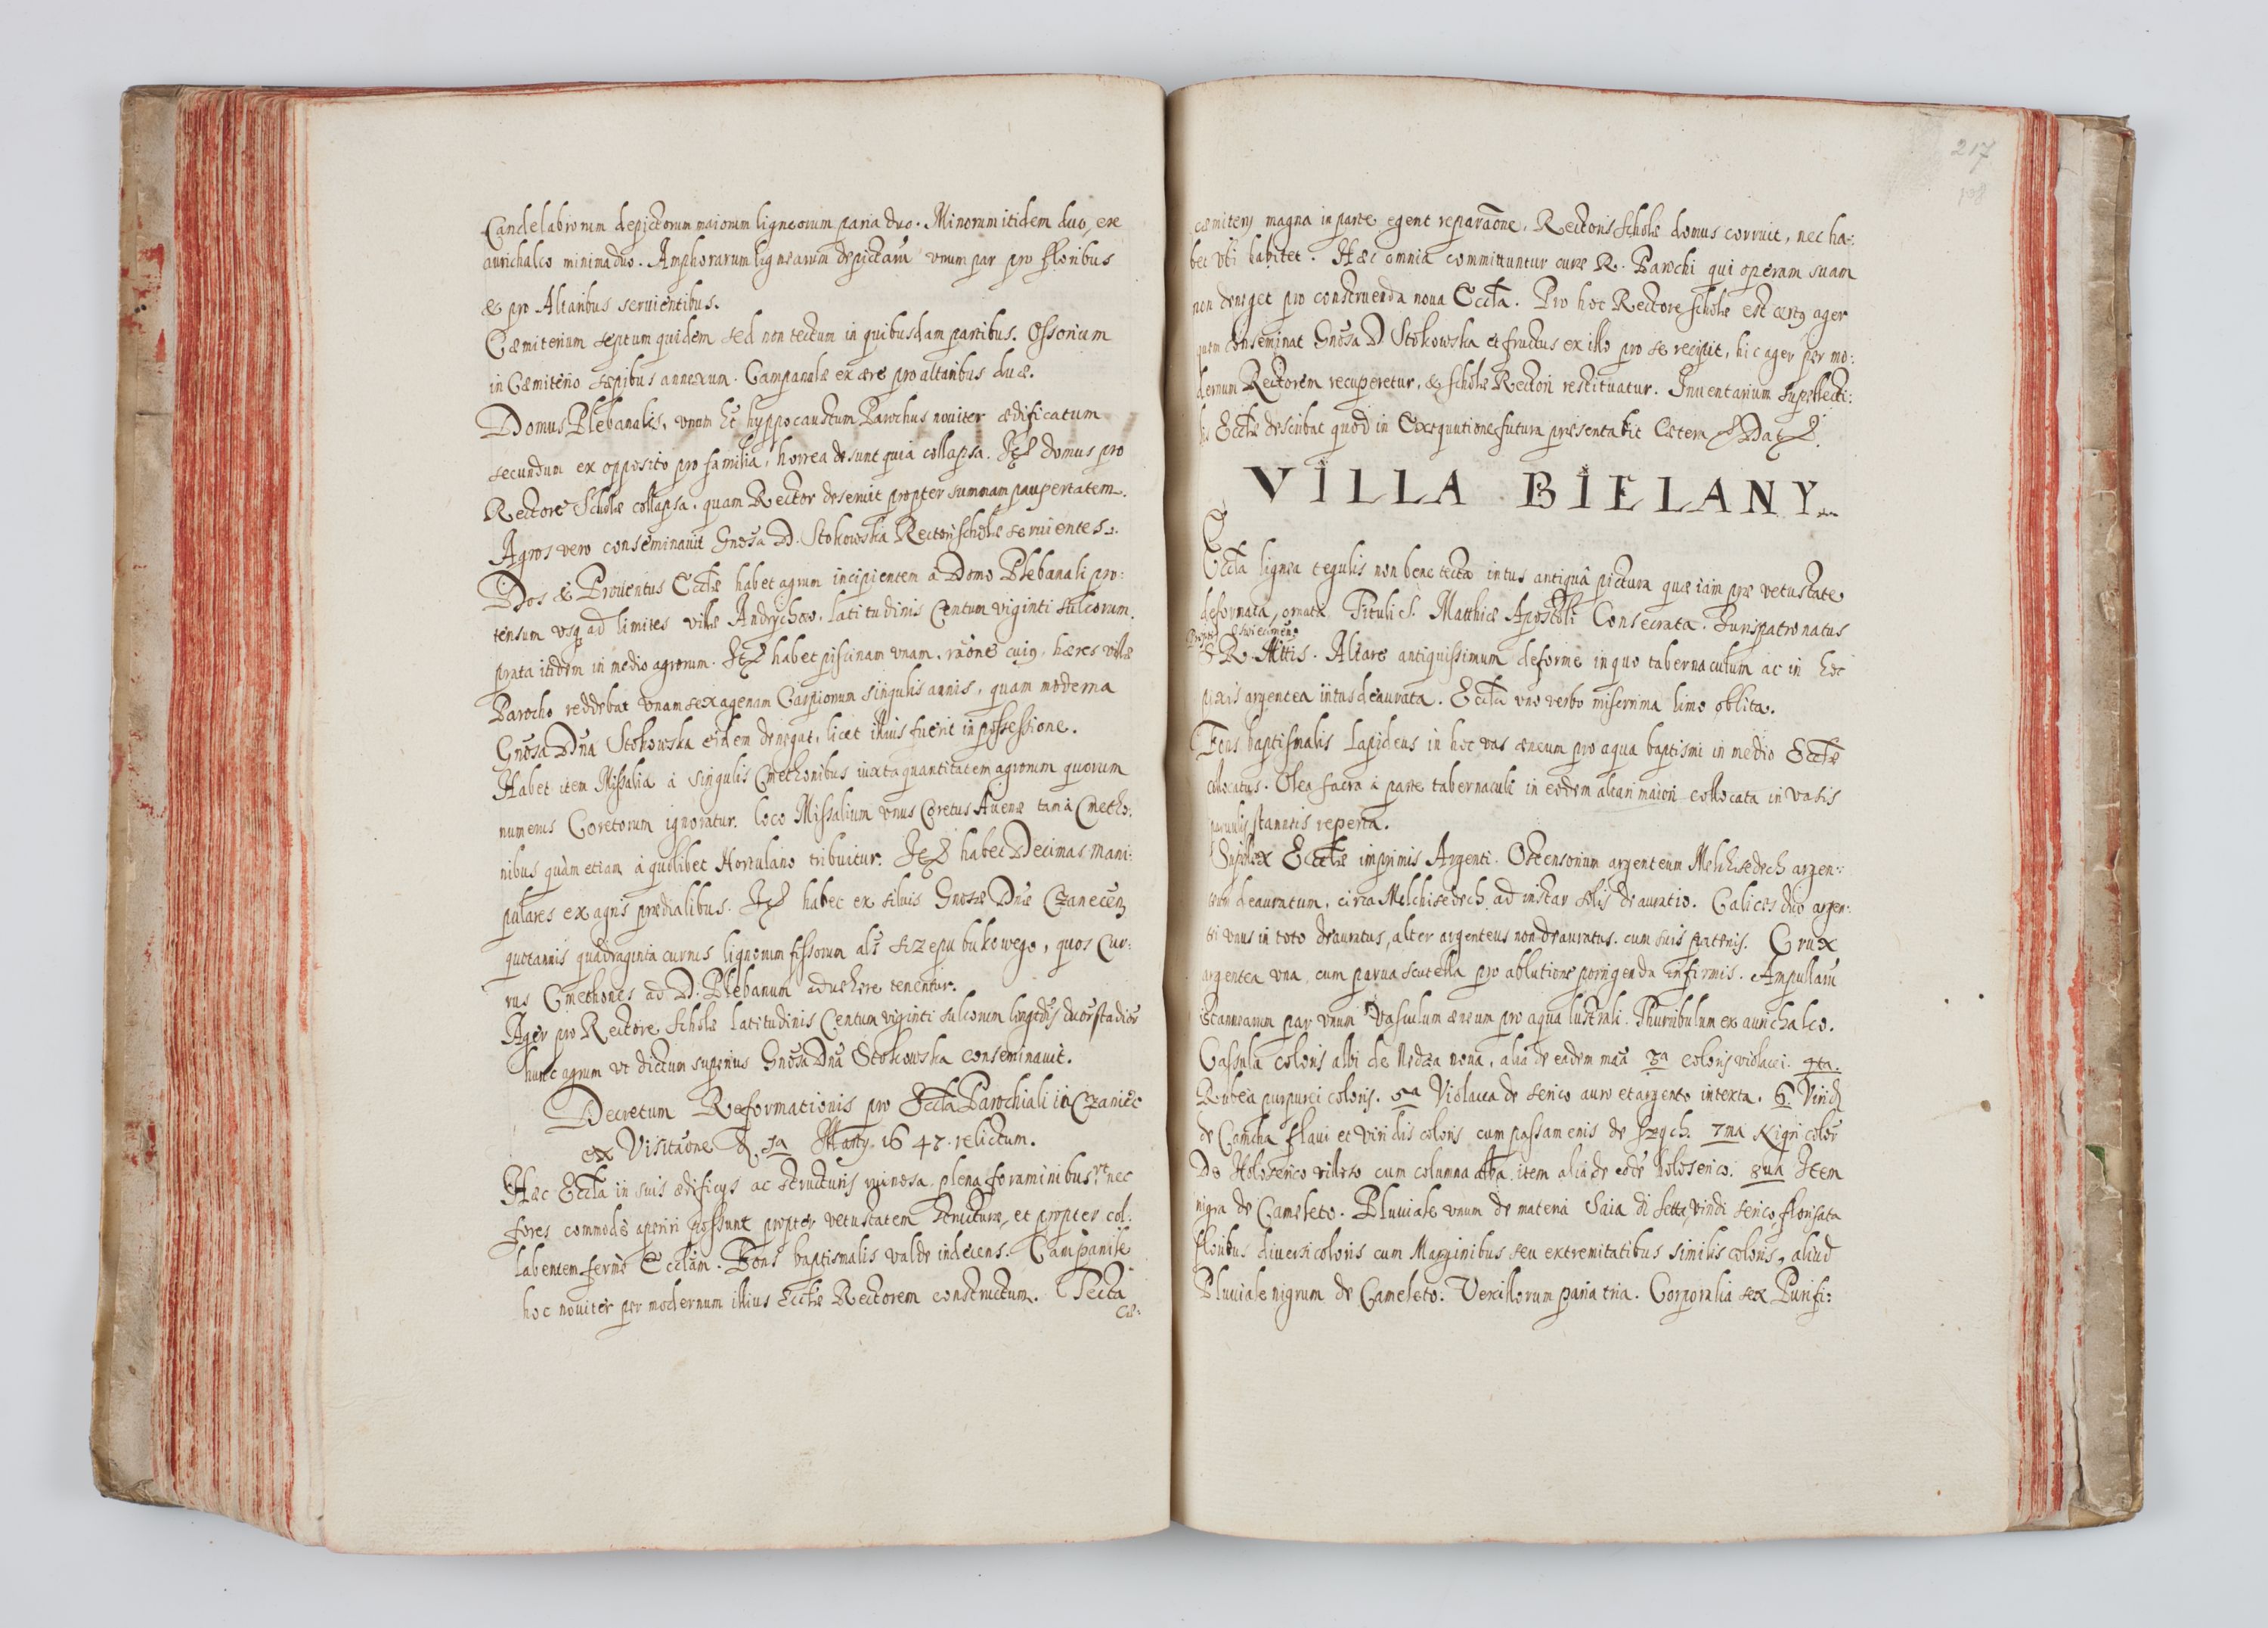 Candelabrorum depictorum maiorum ligneorum paria duo. Minorum itidem duo, ex
aurichalco minima duo. Amphorarum lignearum depictarũ vnum par pro floribus
& pro Altaribus seruientibus.
Cæmiterium septum quidem sed non tectum in quibusdam partibus. Ossorium
in Cæmiterio sæpibus annexum. Campanulæ ex ære pro altaribus duæ.
Domus Plebanalis, vnum hẽt hyppocaustum Parochus nouiter ædificatum
secundum ex opposito pro familia, horrea desunt quia collapsa. Itẽ domus pro
Rectore Scholæ collapsa. quam Rector deseruit propter summam paupertatem.
Agros vero conseminauit Gnõsa D. Stokowska Rectori scholæ seruientes.
Dos & Prouentus Eccłæ habet agrum incipientem à Domo Plebanali pro:
tensum vsq ad limites villæ Andrychow, latitudinis Centum viginti sulcorum.
prata itidem in medio agrorum. Itẽ habet piscinam vnam, rãone cuiq, hæres villæ
Parocho reddebat vnam sexagenam Carpionum singulis annis, quam moderna
Gnõsa Dña Stokowska eidem denegat, licet illius fuerit in possessione.
Habet item Missalia à singulis Cmethonibus iuxta quantitatem agrorum quorum
numerus Coretorum ignoratur. loco Missalium vnus Coretus Auenæ tam à Cmetho:
nibus quàm etiam à quolibet Hortulano tribuitur. Itẽ habet Decimas mani:
pulares ex agris prædialibus. Itẽ habet ex siluis Gnosæ Dnæ Czanecen
quotannis quadraginta currus lignorum fissorum als sczepu bukowego, quos Cur:
rus Cmethones ad D. Plebanum aduehere tenentur.
Ager pro Rectore Scholæ latitudinis Centum viginti sulcorum longitdis duos stadios
hunc agrum vt dictum superius Gnõsa Dña Stokowska conseminauit.
Decretum Reformationis pro Eccła Parochiali in Czaniec
ex Visitãone 1a Marty. 1647. relictum.
Hæc Eccła in suis ædificys ac structuris ruinosa, plena foraminibus, vt nec
fores commodè aperiri possunt propter vetustatem structuræ, et propter col:
labentem fermè Eccłam. Fons baptismalis valde indecens. Campanile
hoc nouiter per modernum illius Eccłæ Rectorem constructum. Tecta
Cæ:
217
198
cæmitery magna in parte egent reparãone. Rectoris Scholæ domus corruit, nec ha:
bet vbi habitet. Hæc omnia committuntur curæ R. Parochi qui operam suam
non deneget pro construenda noua Eccła. Pro hoc Rectore Scholæ est certq ager
quem conseminat Gnõsa D Stokowska et fructus ex illo pro se recipit, hic ager per mo:
dernum Rectorem recuperetur, & Scholæ Rectori restituatur. Inuentarium supellecti:
lis Eccłæ describat quod in Exequutione futura præsentabit
VILLA BIELANY
Eccła lignea tegulis non bene tecta intus antiquâ pictura quæ iam præ vetustate
deformata, ornata. Tituli S. Matthiæ Apostoli Consecrata. Jurispatronatus
S R. Mttis. Altare antiquissimum deforme in quo tabernaculum ac in hoc
pixis argentea intus deaurata. Eccła vno verbo miserrima limo oblita.
Fons baptismalis Lapideus in hoc vas æneum pro aqua baptismi in medio Eccłæ
collocatus. Olea sacra à parte tabernaculi in eodem altari maiori collocata in vasis
paruulis stanneis reperta.
Supplex Eccłæ imprimis Argenti. Ostensorium argenteum Melchisedech argen:
teum deauratum, circa Melchisedech ad instar solis deauratio. Calices duo argen:
tei vnus in toto deauratus, alter argenteus non deauratus, cum suis patenis. Crux
argentea vna, cum parua scutella pro ablutione porrigenda infirmis. Ampullarũ
stannearum par vnum Vasculum æneum pro aqua lustrali. Thuribulum ex aurichalco.
Casula coloris albi de noua, alia de eadem mãa 3a coloris violacei. 4ta.
Rubea purpurei coloris. 5a Violacea de serico auro et argento intexta. 6.
de Camcha flaui et viridis coloris cum passamenis de 7ma Nigri color
De Holoserico villoso cum columna alba, item alia de holoserico. 8ua Item
nigra de Cameleto. Pluuiale vnum de materia Saia di setta, viridi serico florisata
floribus diuersi coloris cum Marginibus seu extremitatibus similis coloris, aliud
Pluuiale nigrum de Cameleto. Vexillorum paria tria. Corporalia sex Purifi: